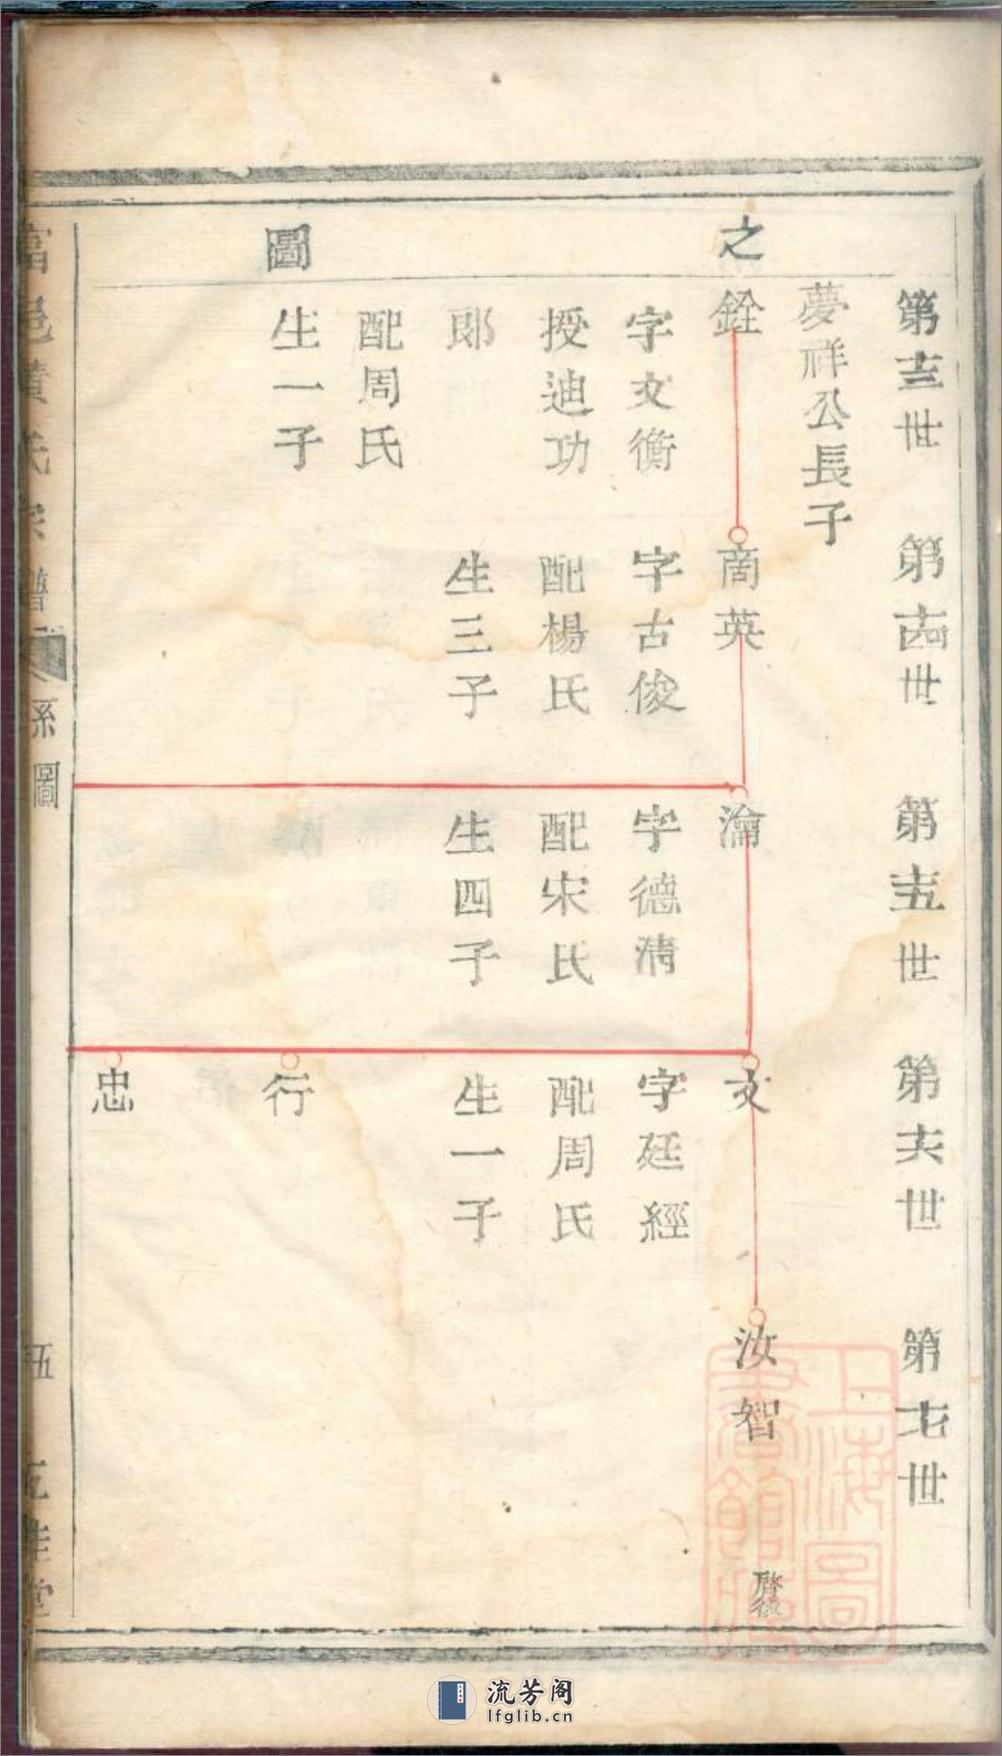 之
圖
第十三世
第十四世
第十五世
第十六世
第十七世
夢祥公長子
銓
字文衡
授迪功
郎
配周氏
生一子
商英
字古俊
配楊氏
生三子
瀹
字德清
配宋氏
生四子
文
字廷經
配周氏
生一子
行
忠
汝智
啓後
氏宗譜
系圖
五
堂
上海圖
書館藏
流芳阁
lfglib.cn